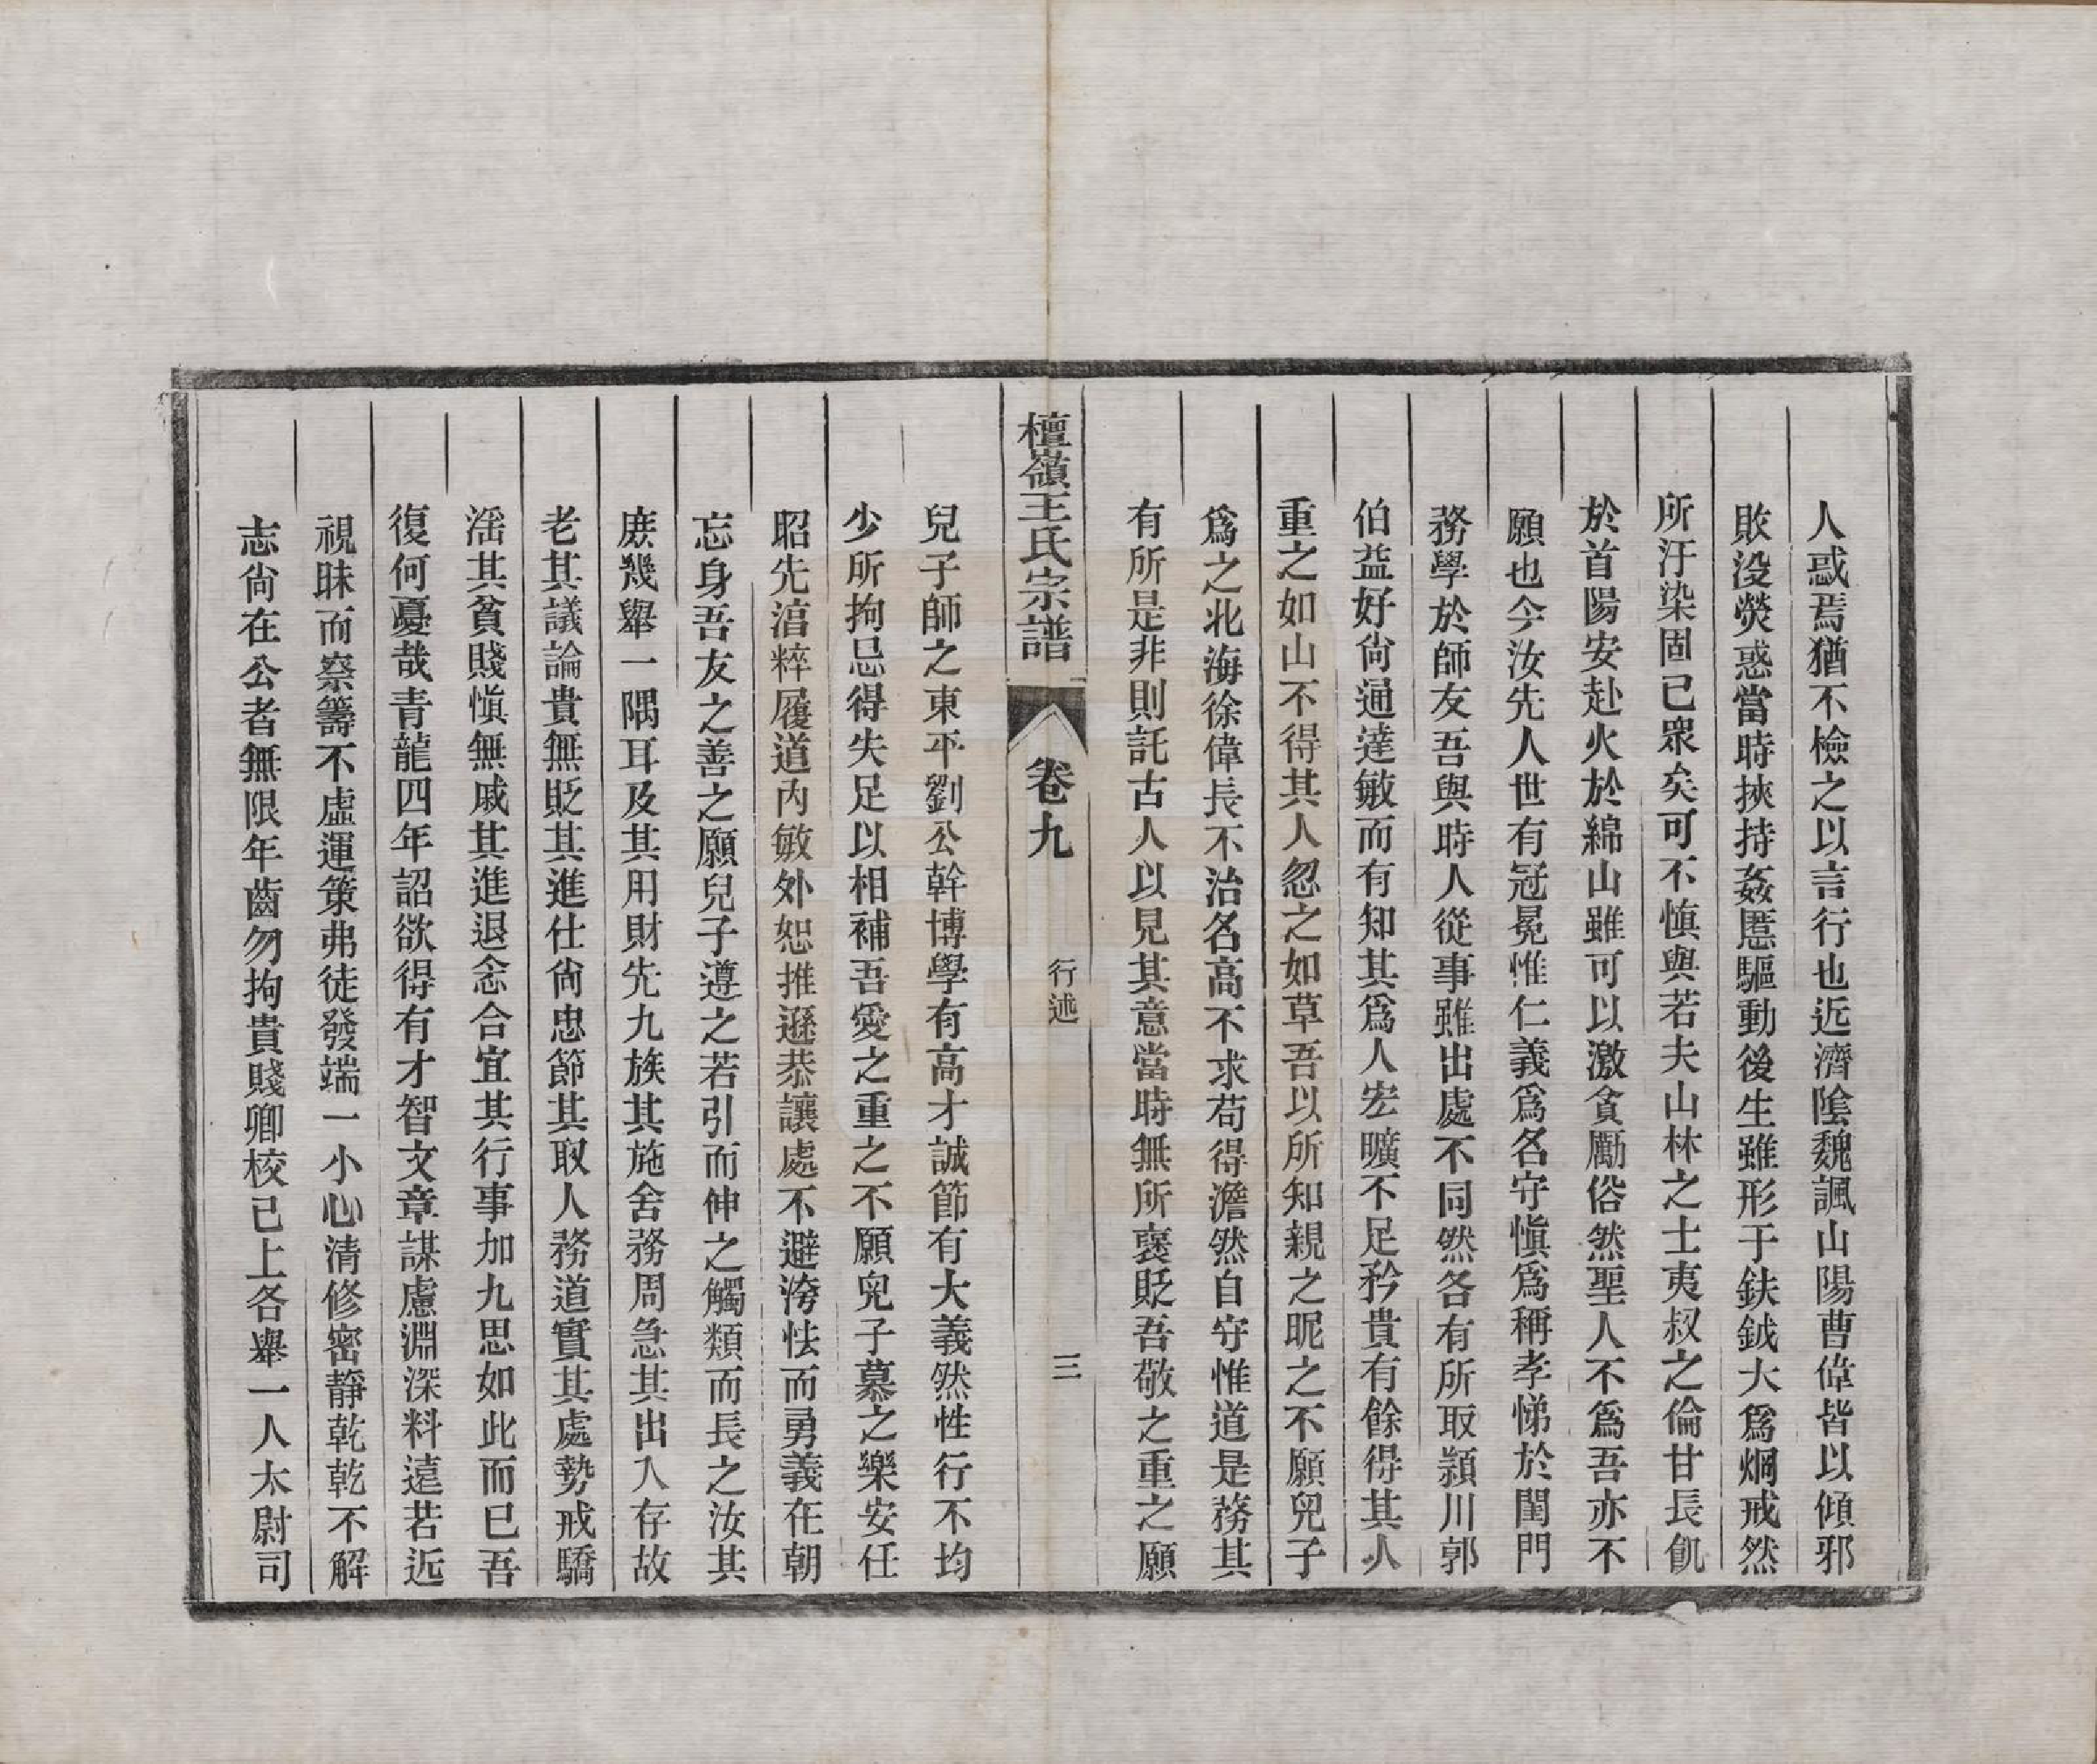 人惑焉猶不檢之以言行也近濟陰魏諷山陽曹偉皆以傾邪
敗沒熒惑當時挾持姦慝驅動後生雖形于鈇鉞大爲烱戒然
所汙染固已衆矣可不慎與若夫山林之士夷叔之倫甘長飢
於首陽安赴火於綿山雖可以激貪勵俗然聖人不爲吾亦不
願也今汝先人世有冠冕惟仁義爲名守慎爲稱孝悌於閨門
務學於師友吾與時人從事雖出處不同然各有所取潁川郭
伯益好尚通達敏而有知其爲人宏曠不足矜貴有餘得其人
重之如山不得其人忽之如草吾以所知親之昵之不願兒子
爲之北海徐偉長不治名高不求苟得澹然自守惟道是務其
有所是非則託古人以見其意當時無所褒貶吾敬之重之願
檀嶺王氏宗譜 卷九 行述 三
兒子師之東平劉公幹博學有高才誠節有大義然性行不均
少所拘忌得失足以相補吾愛之重之不願兒子慕之樂安任
昭先淯粹履道內敏外恕推遜恭讓處不避洿怯而勇義在朝
忘身吾友之善之願兒子遵之若引而伸之觸類而長之汝其
庶幾舉一隅耳及其用財先九族其施舍務周急其出入存故
老其議論貴無貶其進仕尚忠節其取人務道實其處勢戒驕
淫其貧賤慎無戚其進退念合宜其行事加九思如此而已吾
復何憂哉青龍四年詔欲得有才智文章謀慮淵深料遠若近
視昧而察籌不虛運策弗徒發端一小心清修密靜乾乾不解
志尚在公者無限年齒勿拘貴賤卿校已上各舉一人太尉司